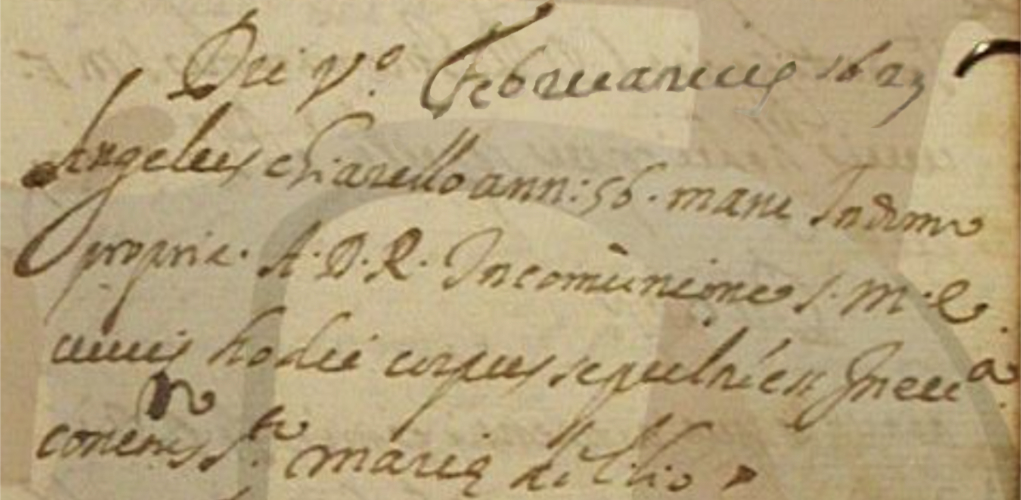 Die p.º Februarius 1623
Angelus Chiarello ann: 56. mane In domo
propria. A. D. R. In comunione S. M. E.
cuius hodie corpus sepult. est In eccª
conent.s S.te mariæ